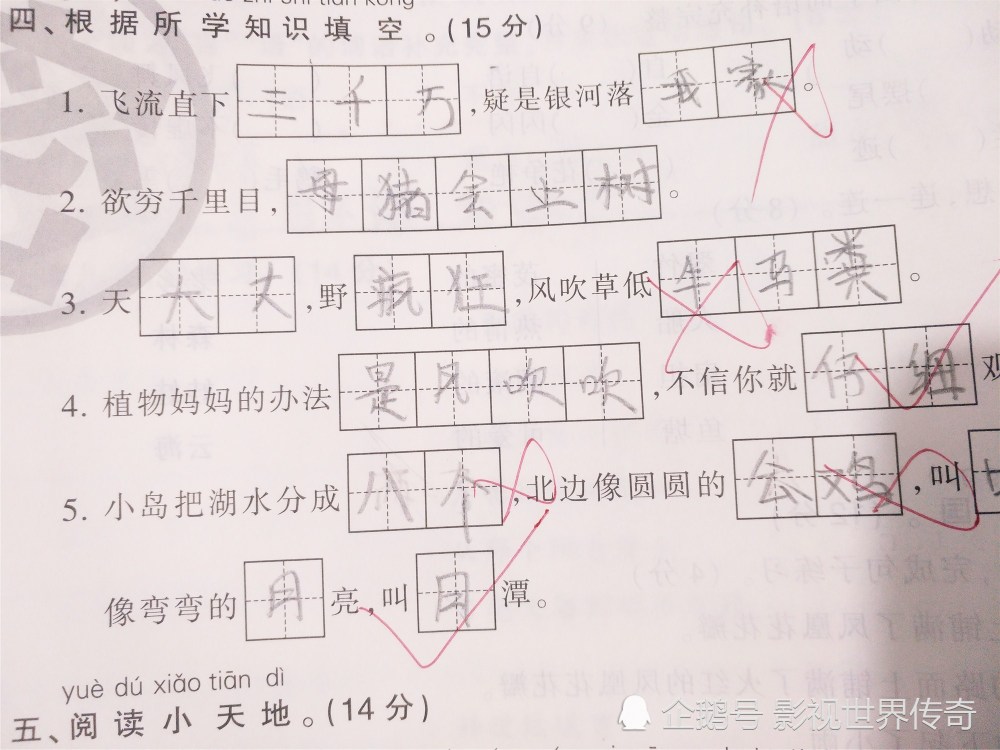 四、根据所学知识填空。(15分)
1. 飞流直下三千万,疑是银河落我家。
2. 欲穷千里目,母猪会上树。
3. 天大大,野疯狂,风吹草低牛马粪。
4. 植物妈妈的办法是风吹吹,不信你就仔细观
5. 小岛把湖水分成八个,北边像圆圆的公鸡,叫日
像弯弯的月亮,叫目潭。
yuè dú xiǎo tiān dì
五、阅读小天地。(14分)
企鹅号 影视世界传奇